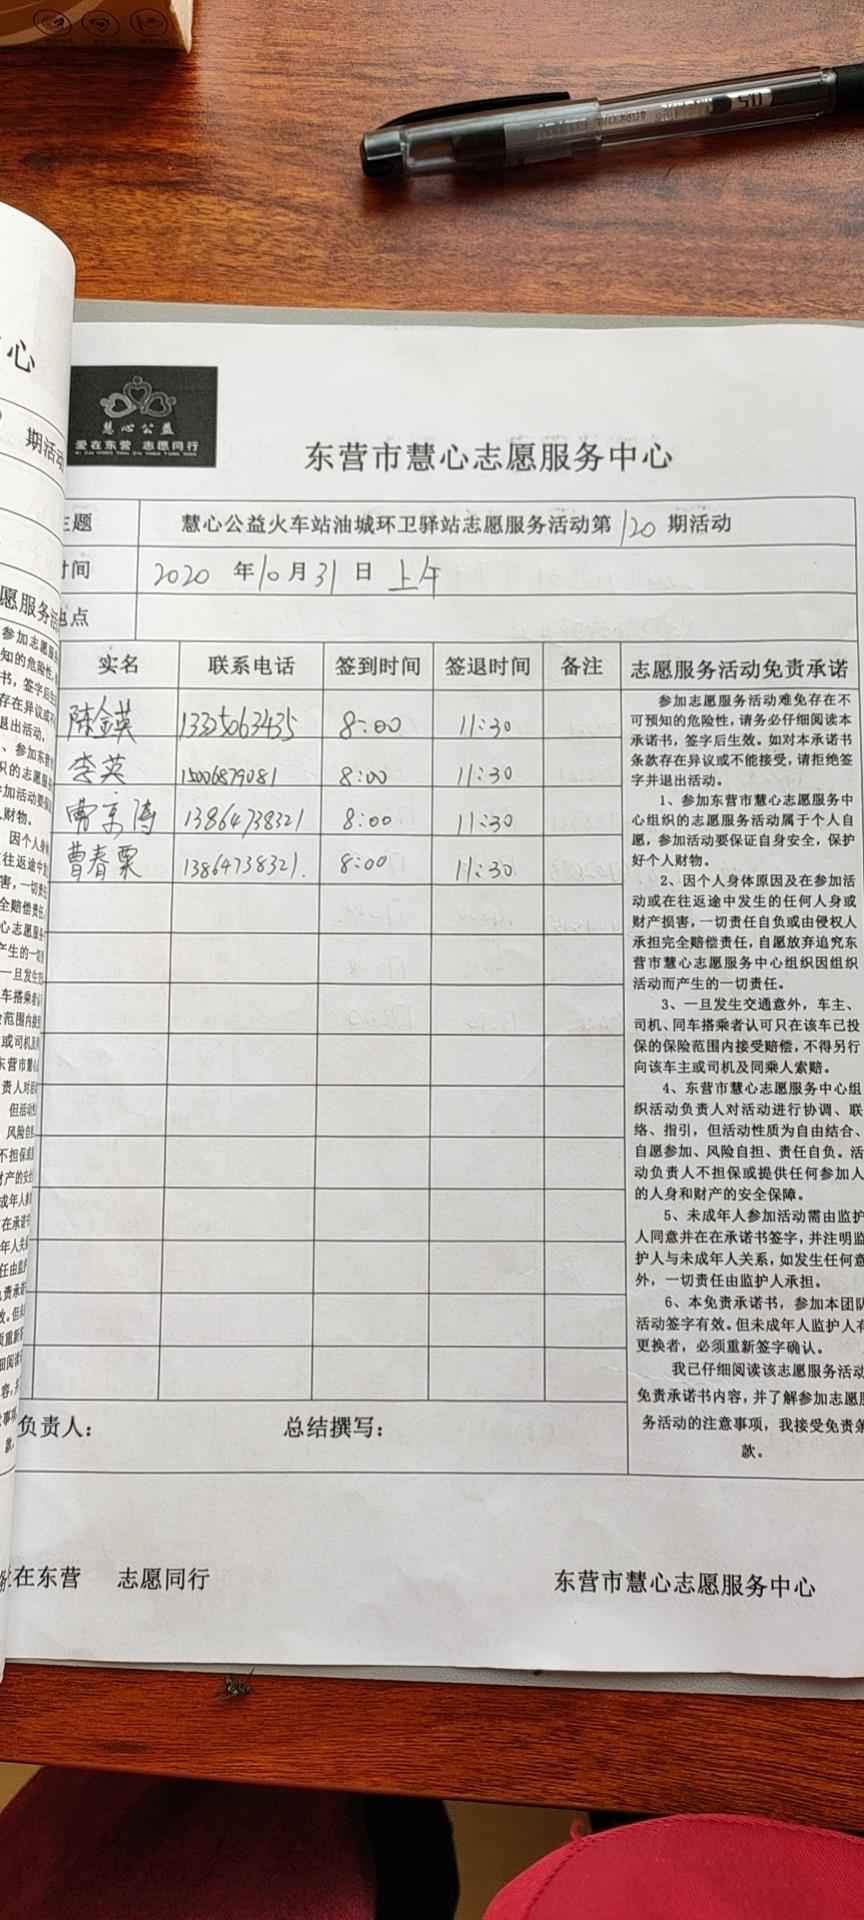 慧心公益
爱在东营 志愿同行
东营市慧心志愿服务中心
主题 慧心公益火车站油城环卫驿站志愿服务活动第120期活动
时间 2020年10月31日 上午
地点
实名 联系电话 签到时间 签退时间 备注 志愿服务活动免责承诺
陈金英 13325063435 8:00 11:30
李英 15006879081 8:00 11:30
曹京涛 13864738321 8:00 11:30
曹春粟 13864738321. 8:00 11:30
参加志愿服务活动难免存在不
可预知的危险性,请务必仔细阅读本
承诺书,签字后生效。如对本承诺书
条款存在异议或不能接受,请拒绝签
字并退出活动。
1、参加东营市慧心志愿服务中
心组织的志愿服务活动属于个人自
愿,参加活动要保证自身安全,保护
好个人财物。
2、因个人身体原因及在参加活
动或在往返途中发生的任何人身或
财产损害,一切责任自负或由侵权人
承担完全赔偿责任,自愿放弃追究东
营市慧心志愿服务中心组织因组织
活动而产生的一切责任。
3、一旦发生交通意外,车主、
司机、同车搭乘者认可只在该车已投
保的保险范围内接受赔偿,不得另行
向该车主或司机及同乘人索赔。
4、东营市慧心志愿服务中心组
织活动负责人对活动进行协调、联
络、指引,但活动性质为自由结合、
自愿参加、风险自担、责任自负。活
动负责人不担保或提供任何参加人
的人身和财产的安全保障。
5、未成年人参加活动需由监护
人同意并在在承诺书签字,并注明监
护人与未成年人关系,如发生任何意
外,一切责任由监护人承担。
6、本免责承诺书,参加本团队
活动签字有效。但未成年人监护人有
更换者,必须重新签字确认。
我已仔细阅读该志愿服务活动
免责承诺书内容,并了解参加志愿服
务活动的注意事项,我接受免责条
款。
负责人: 总结撰写:
在东营 志愿同行 东营市慧心志愿服务中心